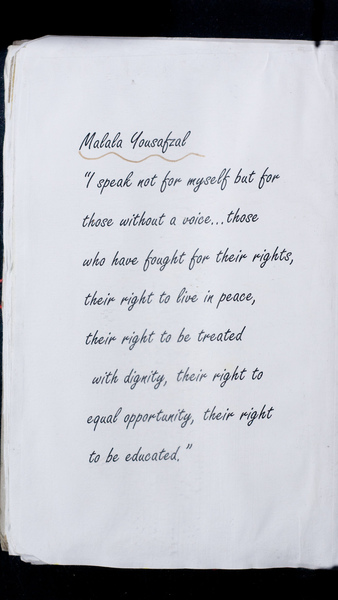 Malala Yousafzal
"I speak not for myself but for
those without a voice...those
who have fought for their rights,
their right to live in peace,
their right to be treated
with dignity, their right to
equal opportunity, their right
to be educated."